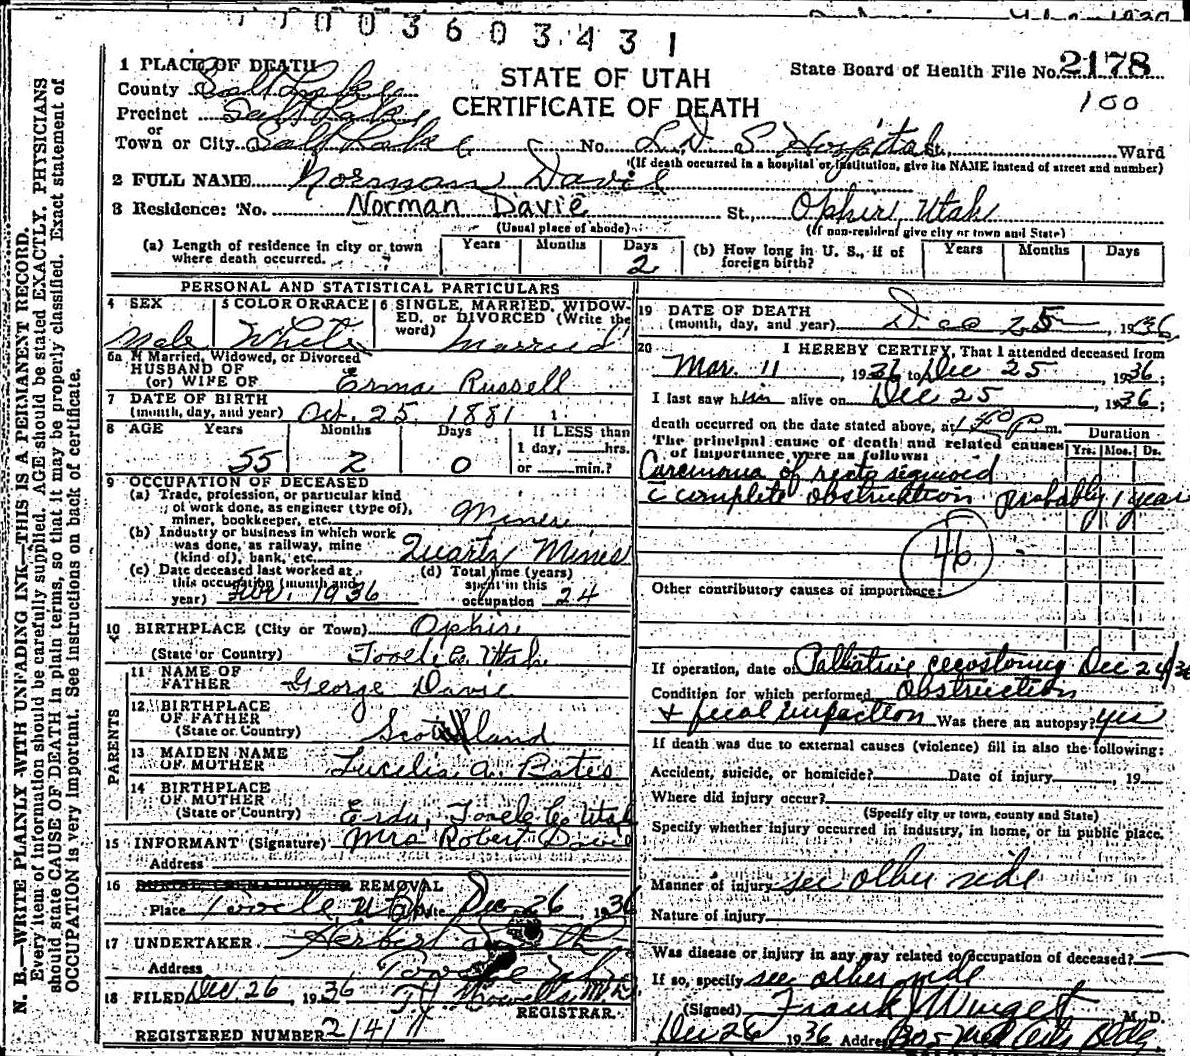 1 0 0 3 6 0 3 4 3 1
1 PLACE OF DEATH
STATE OF UTAH
CERTIFICATE OF DEATH
State Board of Health File No. 2178
100
County Salt Lake
Precinct Salt Lake
or
Town or City Salt Lake C No. L.D.S Hospital St., Ward
(If death occurred in a hospital or institution, give its NAME instead of street and number)
2 FULL NAME Norman Davie
3 Residence: No. Norman Davie St., Ophir, Utah
(Usual place of abode) (If non-resident give city or town and State)
(a) Length of residence in city or town where death occurred. Years Months Days 2 (b) How long in U. S., if of foreign birth? Years Months Days
PERSONAL AND STATISTICAL PARTICULARS
4 SEX 5 COLOR OR RACE 6 SINGLE, MARRIED, WIDOWED, or DIVORCED (Write the word)
Male White Married
6a If Married, Widowed, or Divorced
HUSBAND OF
(or) WIFE OF Erma Russell
7 DATE OF BIRTH
(month, day, and year) Oct. 25, 1881
8 AGE Years Months Days If LESS than
1 day, hrs.
55 2 0 or min.?
9 OCCUPATION OF DECEASED
(a) Trade, profession, or particular kind
of work done, as engineer (type of),
miner, bookkeeper, etc. Miner
(b) Industry or business in which work
was done, as railway, mine
(kind of), bank, etc. Quartz Mines
(c) Date deceased last worked at
this occupation (month and
year) 1936
(d) Total time (years)
spent in this
occupation 24
10 BIRTHPLACE (City or Town) Ophir
(State or Country) Tooele Co. Utah
PARENTS
11 NAME OF
FATHER George Davie
12 BIRTHPLACE
OF FATHER
(State or Country) Scotland
13 MAIDEN NAME
OF MOTHER Lucelia A. Bates
14 BIRTHPLACE
OF MOTHER
(State or Country) Erda, Tooele Co Utah
15 INFORMANT (Signature) Mrs Robert Davie
Address
16 BURIAL, CREMATION, OR REMOVAL
Place Tooele Utah Date Dec 26, 1936
17 UNDERTAKER Herbert
Address Tooele Utah
18 FILED Dec. 26, 1936 T.J. Howells M.D.
REGISTRAR.
REGISTERED NUMBER 2141
19 DATE OF DEATH
(month, day, and year) Dec 25, 1936
20 I HEREBY CERTIFY, That I attended deceased from
Mar. 11, 1936 to Dec 25, 1936;
I last saw him alive on Dec 25, 1936;
death occurred on the date stated above, at 1 40 P m.
The principal cause of death and related causes
of importance were as follows: Duration
Yrs. Mos. Ds.
Carcinoma of recto sigmoid
c complete obstruction probably 1 year
46
Other contributory causes of importance:
If operation, date of Palliative cecostomy Dec 24/36
Condition for which performed obstruction
+ fecal impaction Was there an autopsy? yes
If death was due to external causes (violence) fill in also the following:
Accident, suicide, or homicide? Date of injury , 19
Where did injury occur?
(Specify city or town, county and State)
Specify whether injury occurred in industry, in home, or in public place.
Manner of injury see other side
Nature of injury
Was disease or injury in any way related to occupation of deceased?
If so, specify see other side
(Signed) Frank J Winget M. D.
Dec 26 1936 Address 205 Med Arts Bldg.
N. B.—WRITE PLAINLY WITH UNFADING INK—THIS IS A PERMANENT RECORD.
Every item of information should be carefully supplied. AGE should be stated EXACTLY. PHYSICIANS
should state CAUSE OF DEATH in plain terms, so that it may be properly classified. Exact statement of
OCCUPATION is very important. See instructions on back of certificate.